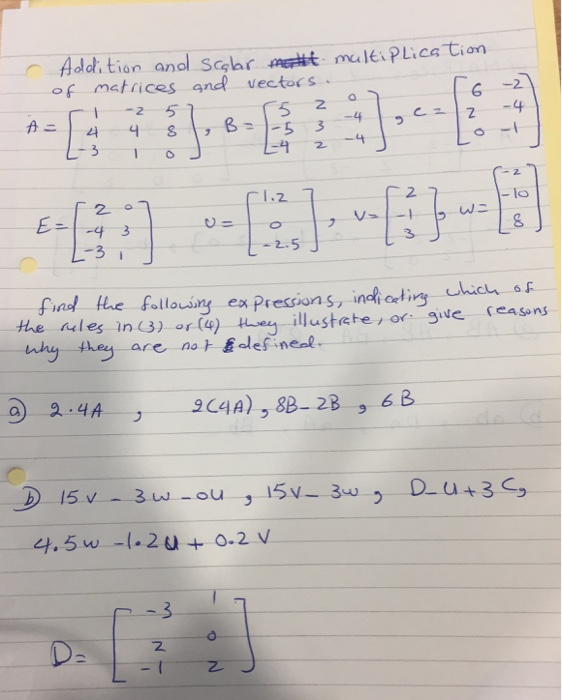 Addition and Scalar multiplication
of matrices and vectors.
A = [1 -2 5; 4 4 8; -3 1 0], B = [5 2 0; -5 3 -4; -4 2 -4], C = [6 -2; 2 -4; 0 -1]
E = [2 0; -4 3; -3 1] U = [1.2; 0; -2.5], V = [2; -1; 3], W = [-2; -10; 8]
find the following expressions, indicating which of
the rules in (3) or (4) they illustrate, or give reasons
why they are not defined.
a) 2.4A, 2(4A), 8B-2B, 6B
b) 15v - 3w - 0u, 15v - 3w, D-u+3C,
4.5w -1.2u + 0.2v
D = [-3 1; 2 0; -1 2]